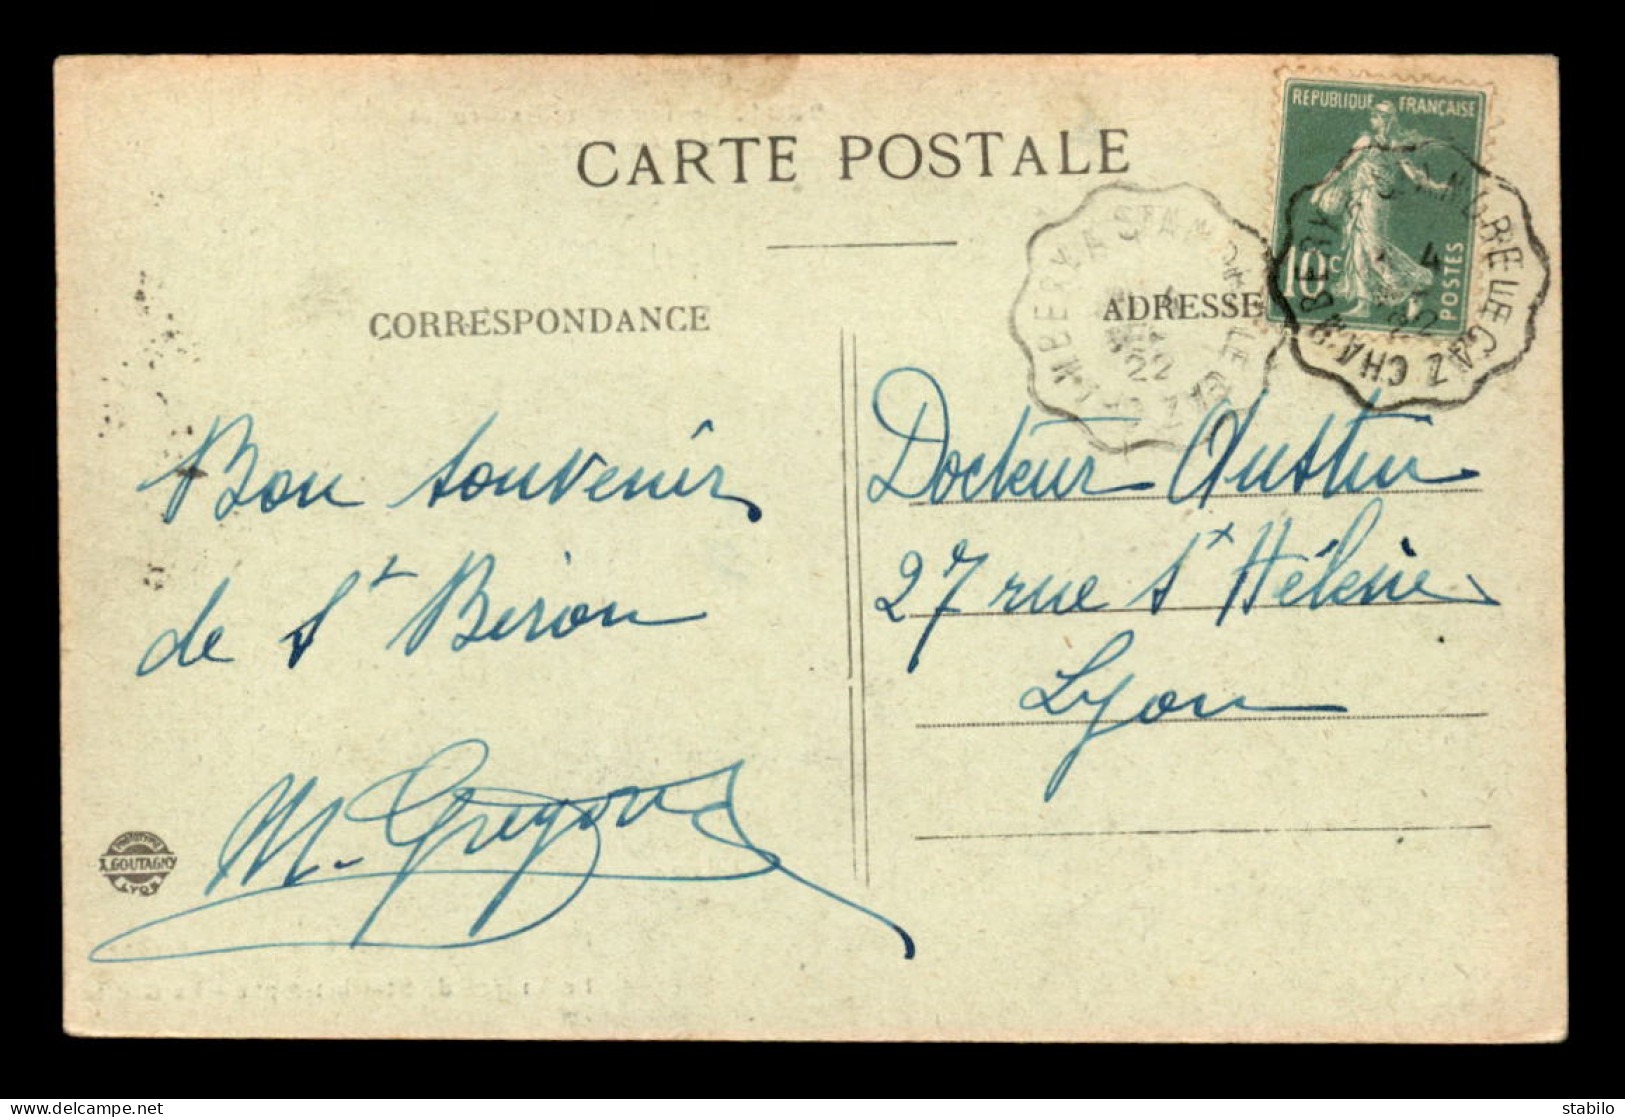 CARTE POSTALE
CORRESPONDANCE
ADRESSE
REPUBLIQUE FRANÇAISE
10c
POSTES
CHAMBERY A ST ANDRE LE GAZ
22
CHAMBERY A ST ANDRE LE GAZ
4
22
Bon souvenir
de St Béron
M. Gregoire
Docteur Austin
27 rue St Hélène
Lyon
PHOTOTYPIE
A. GOUTAGNY
LYON
stabilo